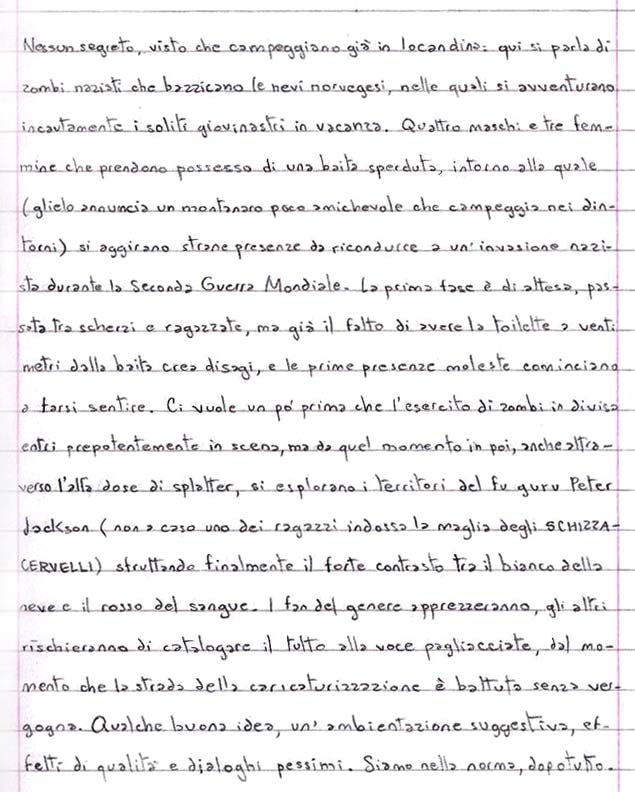 Nessun segreto, visto che campeggiano già in locandina: qui si parla di
zombi nazisti che bazzicano le nevi norvegesi, nelle quali si avventurano
incautamente i soliti giovinastri in vacanza. Quattro maschi e tre fem-
mine che prendono possesso di una baita sperduta, intorno alla quale
(glielo annuncia un montanaro poco amichevole che campeggia nei din-
torni) si aggirano strane presenze da ricondurre a un'invasione nazi-
sta durante la Seconda Guerra Mondiale. La prima fase è di attesa, pas-
sata tra scherzi e ragazzate, ma già il fatto di avere la toilette a venti
metri dalla baita crea disagi, e le prime presenze moleste cominciano
a farsi sentire. Ci vuole un po' prima che l'esercito di zombi in divisa
entri prepotentemente in scena, ma da quel momento in poi, anche attra-
verso l'alta dose di splatter, si esplorano i territori del fu guru Peter
Jackson (non a caso uno dei ragazzi indossa la maglia degli SCHIZZA-
CERVELLI) sfruttando finalmente il forte contrasto tra il bianco della
neve e il rosso del sangue. I fan del genere apprezzeranno, gli altri
rischieranno di catalogare il tutto alla voce pagliacciate, dal mo-
mento che la strada della caricaturizzazione è battuta senza ver-
gogna. Qualche buona idea, un'ambientazione suggestiva, ef-
fetti di qualità e dialoghi pessimi. Siamo nella norma, dopotutto.